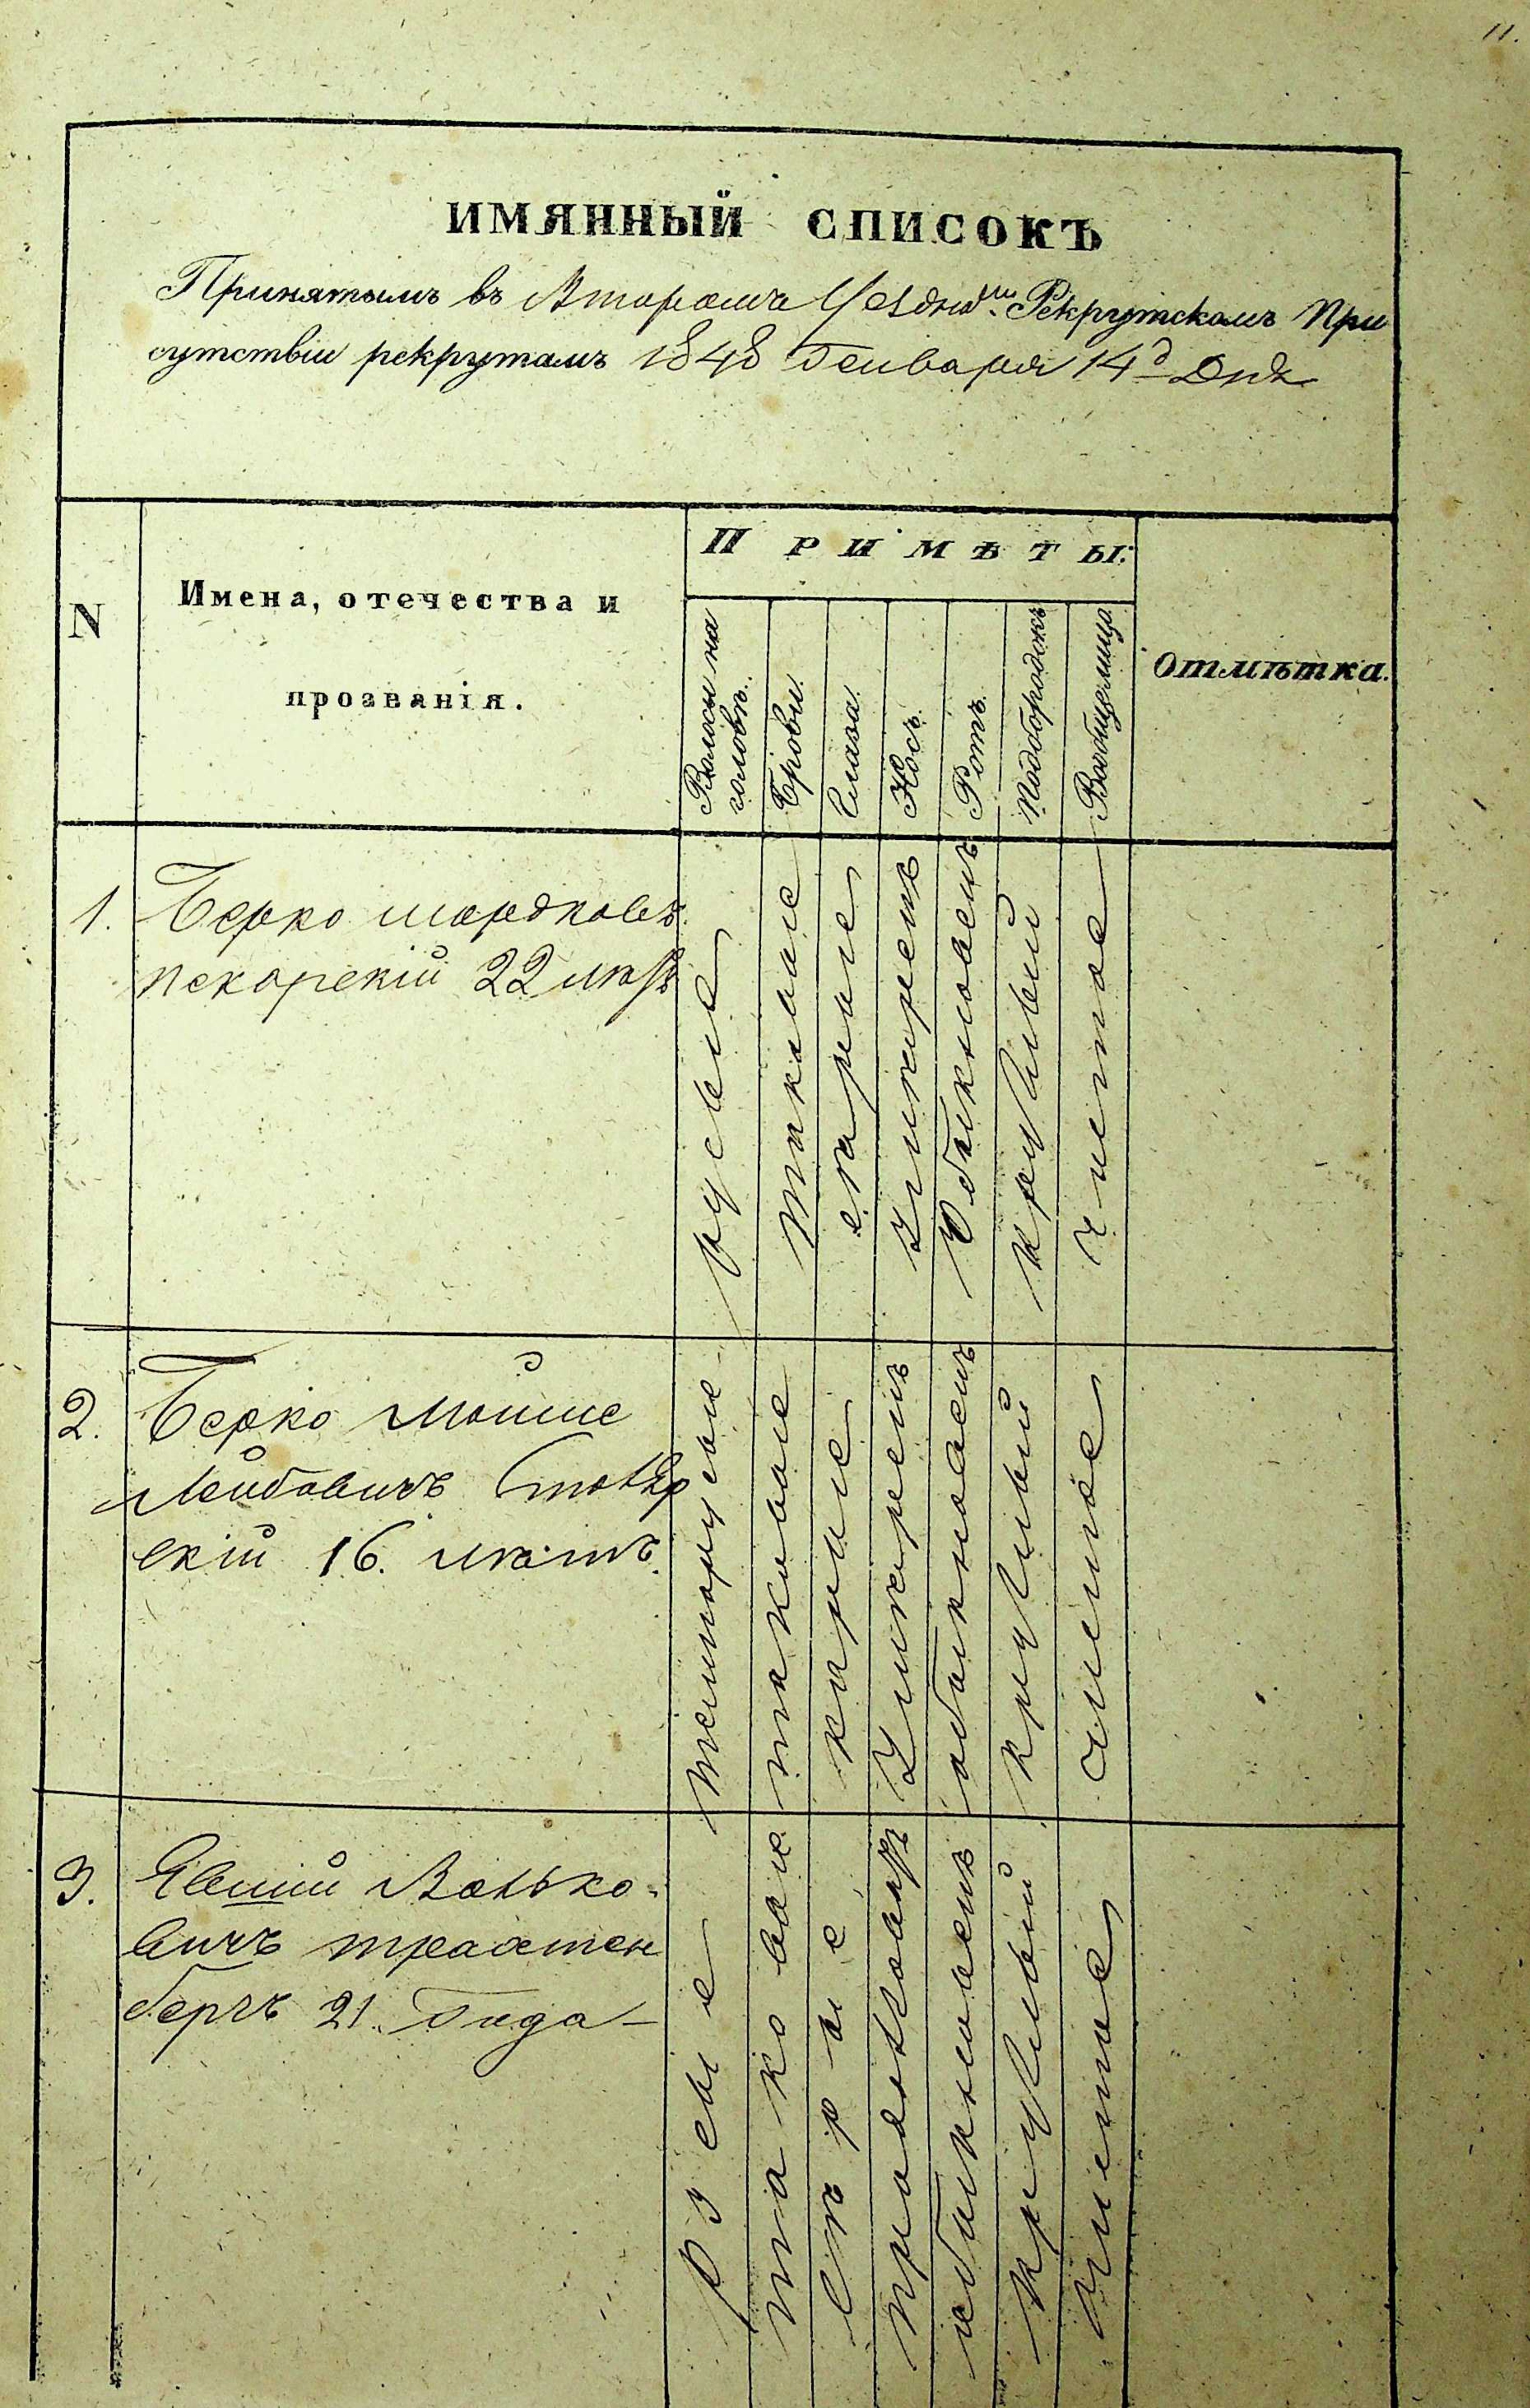 11.
ИМЯННЫЙ СПИСОКЪ
Принятымъ въ Второмъ Уездно^мъ Рекрутскомъ При
сутствіи рекрутамъ 1848 Генваря 14^д Дня
N
Имена, отечества и
прозванія.
Примѣты.
Волосы на
головѣ.
Брови.
Глаза.
Носъ.
Ротъ.
Подбородокъ
Вообще лице
Отмѣтка.
1.
Берко Мордковъ
22 лѣтъ
русые
такове
сѣрые
умѣренъ
обыкновенъ
круглый
чистое
2.
Берко Мойше
Лейбовичъ
скій 16. лѣтъ.
темнорусые
таковые
карие
умѣренъ
обыкновенъ
круглый
чистое
3.
Янько-
вичъ трахтен
бергъ 21. Года
русые
таковые
Сѣрые
продолговатъ
обыкновенъ
круглый
чистое